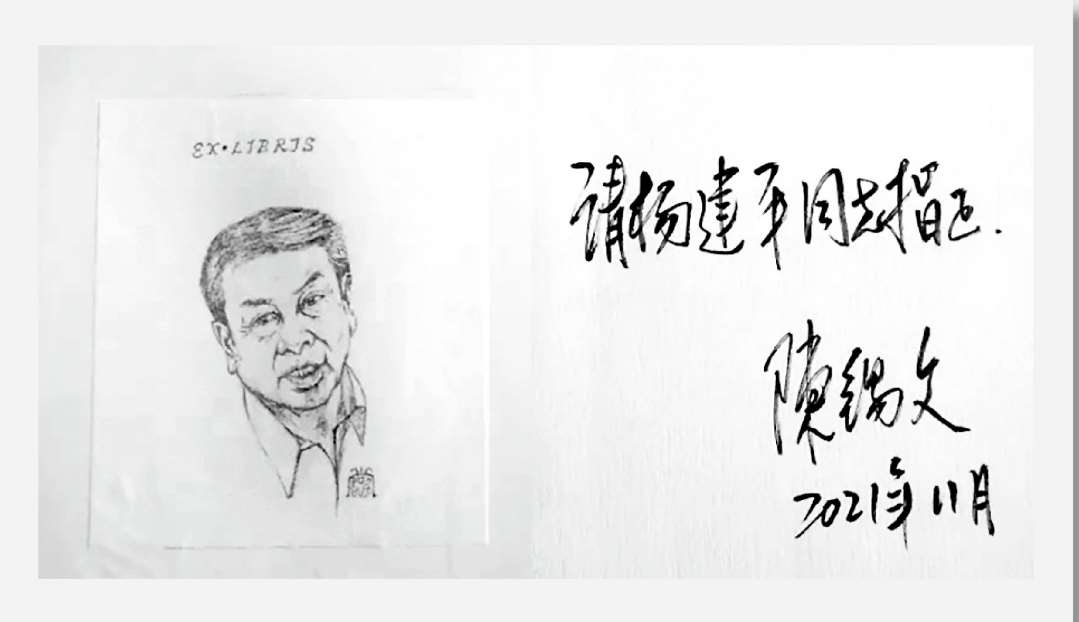 EX·LIBRIS
请杨建平同志指正.
陳锡文
2021年11月